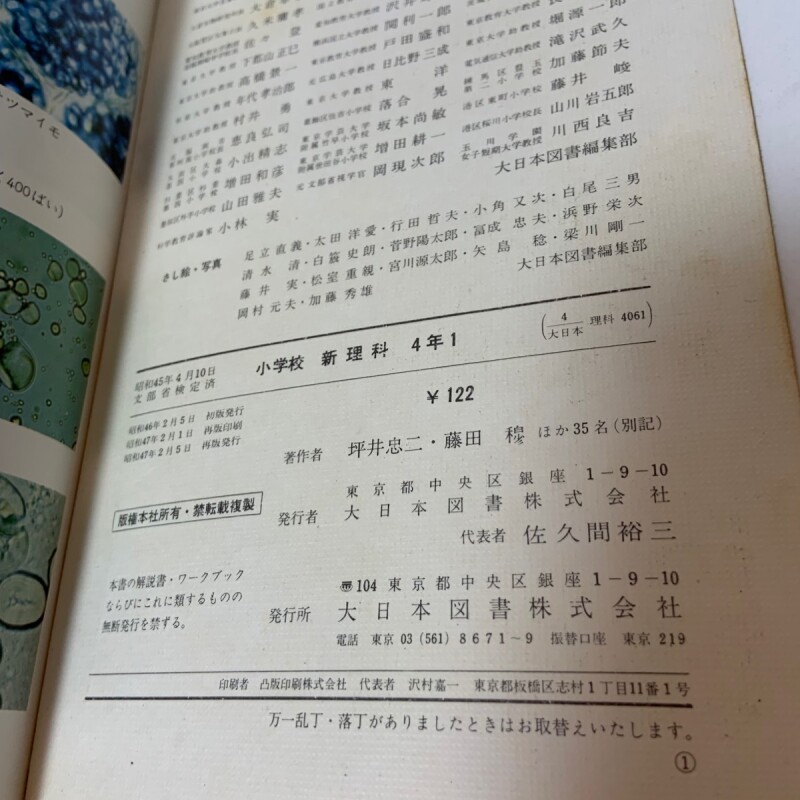 ツマイモ
400ばい)
久米庸孝
佐々 登
下郡山正巳
高橋景一
年代孝治郎
村井 勇
恵良弘司
小出精志
増田和彦
山田雅夫
小林 実
関利一郎
戸田盛和
日比野三成
東 洋
落合 晃
坂本尚敏
増田耕一
元文部省視学官 岡現次郎
堀源一郎
滝沢武久
加藤節夫
港区東町小学校 藤井 峻
港区桜川小学校長 山川岩五郎
玉川学園女子短期大学教授 川西良吉
大日本図書編集部
さし絵・写真
足立直義・太田洋愛・行田哲夫・小角又次・白尾三男
清水 清・白籏史朗・菅野陽太郎・冨成忠夫・浜野栄次
藤井 実・松室重親・宮川源太郎・矢島 稔・梁川剛一
岡村元夫・加藤秀雄
大日本図書編集部
昭和45年4月10日
文部省検定済
小学校 新理科 4年1
(4 大日本 理科 4061)
昭和46年2月5日 初版発行
昭和47年2月1日 再版印刷
昭和47年2月5日 再版発行
¥122
著作者 坪井忠二・藤田 穆 ほか35名(別記)
版権本社所有・禁転載複製
東京都中央区銀座 1-9-10
発行者 大日本図書株式会社
代表者 佐久間裕三
本書の解説書・ワークブック
ならびにこれに類するものの
無断発行を禁ずる。
〠104 東京都中央区銀座 1-9-10
発行所 大日本図書株式会社
電話 東京 03 (561) 8671~9 振替口座 東京 219
印刷者 凸版印刷株式会社 代表者 沢村嘉一 東京都板橋区志村1丁目11番1号
万一乱丁・落丁がありましたときはお取替えいたします。
①